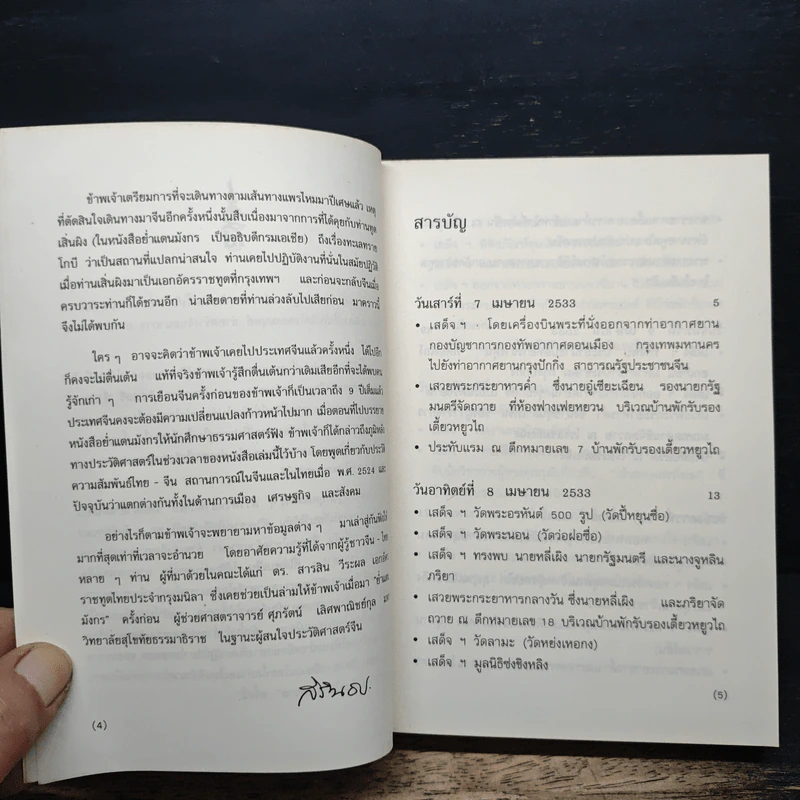 ข้าพเจ้าเตรียมการที่จะเดินทางตามเส้นทางแพรไหมมาปีเศษแล้ว เหตุ
ที่ตัดสินใจเดินทางมาจีนอีกครั้งหนึ่งนั้นสืบเนื่องมาจากการที่ได้คุยกับท่านทูต
เสิ่นผิง (ในหนังสือย่ำแดนมังกร เป็นอธิบดีกรมเอเชีย) ถึงเรื่องทะเลทราย
โกบี ว่าเป็นสถานที่แปลกน่าสนใจ ท่านเคยไปปฏิบัติงานที่นั่นในสมัยปฏิวัติ
เมื่อท่านเสิ่นผิงมาเป็นเอกอัครราชทูตที่กรุงเทพฯ และก่อนจะกลับจีนเมื่อ
ครบวาระท่านก็ได้ชวนอีก น่าเสียดายที่ท่านล่วงลับไปเสียก่อน มาคราวนี้
จึงไม่ได้พบกัน
ใคร ๆ อาจจะคิดว่าข้าพเจ้าเคยไปประเทศจีนแล้วครั้งหนึ่ง ได้ไปอีก
ก็คงจะไม่ตื่นเต้น แท้ที่จริงข้าพเจ้ารู้สึกตื่นเต้นกว่าเดิมเสียอีกที่จะ
รู้จักเก่า ๆ การเยือนจีนครั้งก่อนของข้าพเจ้าก็เป็นเวลาถึง 9 ปีเต็มแล้ว
ประเทศจีนคงจะต้องมีความเปลี่ยนแปลงก้าวหน้าไปมาก เมื่อตอนที่ไปบรรยาย
หนังสือย่ำแดนมังกรให้นักศึกษาธรรมศาสตร์ฟัง ข้าพเจ้าก็ได้กล่าวถึงภูมิหลัง
ทางประวัติศาสตร์ในช่วงเวลาของหนังสือเล่มนี้ไว้บ้าง โดยพูดเกี่ยวกับประวัติ
ความสัมพันธ์ไทย - จีน สถานการณ์ในจีนและในไทยเมื่อ พ.ศ. 2524 และ
ปัจจุบันว่าแตกต่างกันทั้งในด้านการเมือง เศรษฐกิจ และสังคม
อย่างไรก็ตามข้าพเจ้าจะพยายามหาข้อมูลต่าง ๆ มาเล่าสู่กันฟังให้
มากที่สุดเท่าที่เวลาจะอำนวย โดยอาศัยความรู้ที่ได้จากผู้รู้ชาวจีน - ไทย
หลาย ๆ ท่าน ผู้ที่มาด้วยในคณะได้แก่ ดร. สารสิน วีระผล เอกอัคร
ราชทูตไทยประจำกรุงมนิลา ซึ่งเคยช่วยเป็นล่ามให้ข้าพเจ้าเมื่อมา "ย่ำแดน
มังกร" ครั้งก่อน ผู้ช่วยศาสตราจารย์ ศุภรัตน์ เลิศพาณิชย์กุล
วิทยาลัยสุโขทัยธรรมาธิราช ในฐานะผู้สนใจประวัติศาสตร์จีน
สิรินธร
(4)
สารบัญ
วันเสาร์ที่ 7 เมษายน 2533 5
• เสด็จ ฯ โดยเครื่องบินพระที่นั่งออกจากท่าอากาศยาน
กองบัญชาการกองทัพอากาศดอนเมือง กรุงเทพมหานคร
ไปยังท่าอากาศยานกรุงปักกิ่ง สาธารณรัฐประชาชนจีน
• เสวยพระกระยาหารค่ำ ซึ่งนายอู๋เซียะเฉียน รองนายกรัฐ
มนตรีจัดถวาย ที่ห้องฟางเฟยหยวน บริเวณบ้านพักรับรอง
เตี้ยวหยูไถ
• ประทับแรม ณ ตึกหมายเลข 7 บ้านพักรับรองเตี้ยวหยูไถ
วันอาทิตย์ที่ 8 เมษายน 2533 13
• เสด็จ ฯ วัดพระอรหันต์ 500 รูป (วัดปี้หยุนซื่อ)
• เสด็จ ฯ วัดพระนอน (วัดว่อฝอซื่อ)
• เสด็จ ฯ ทรงพบ นายหลี่เผิง นายกรัฐมนตรี และนางจูหลิน
ภริยา
• เสวยพระกระยาหารกลางวัน ซึ่งนายหลี่เผิง และภริยาจัด
ถวาย ณ ตึกหมายเลข 18 บริเวณบ้านพักรับรองเตี้ยวหยูไถ
• เสด็จ ฯ วัดลามะ (วัดหย่งเหอกง)
• เสด็จ ฯ มูลนิธิซ่งชิงหลิง
(5)